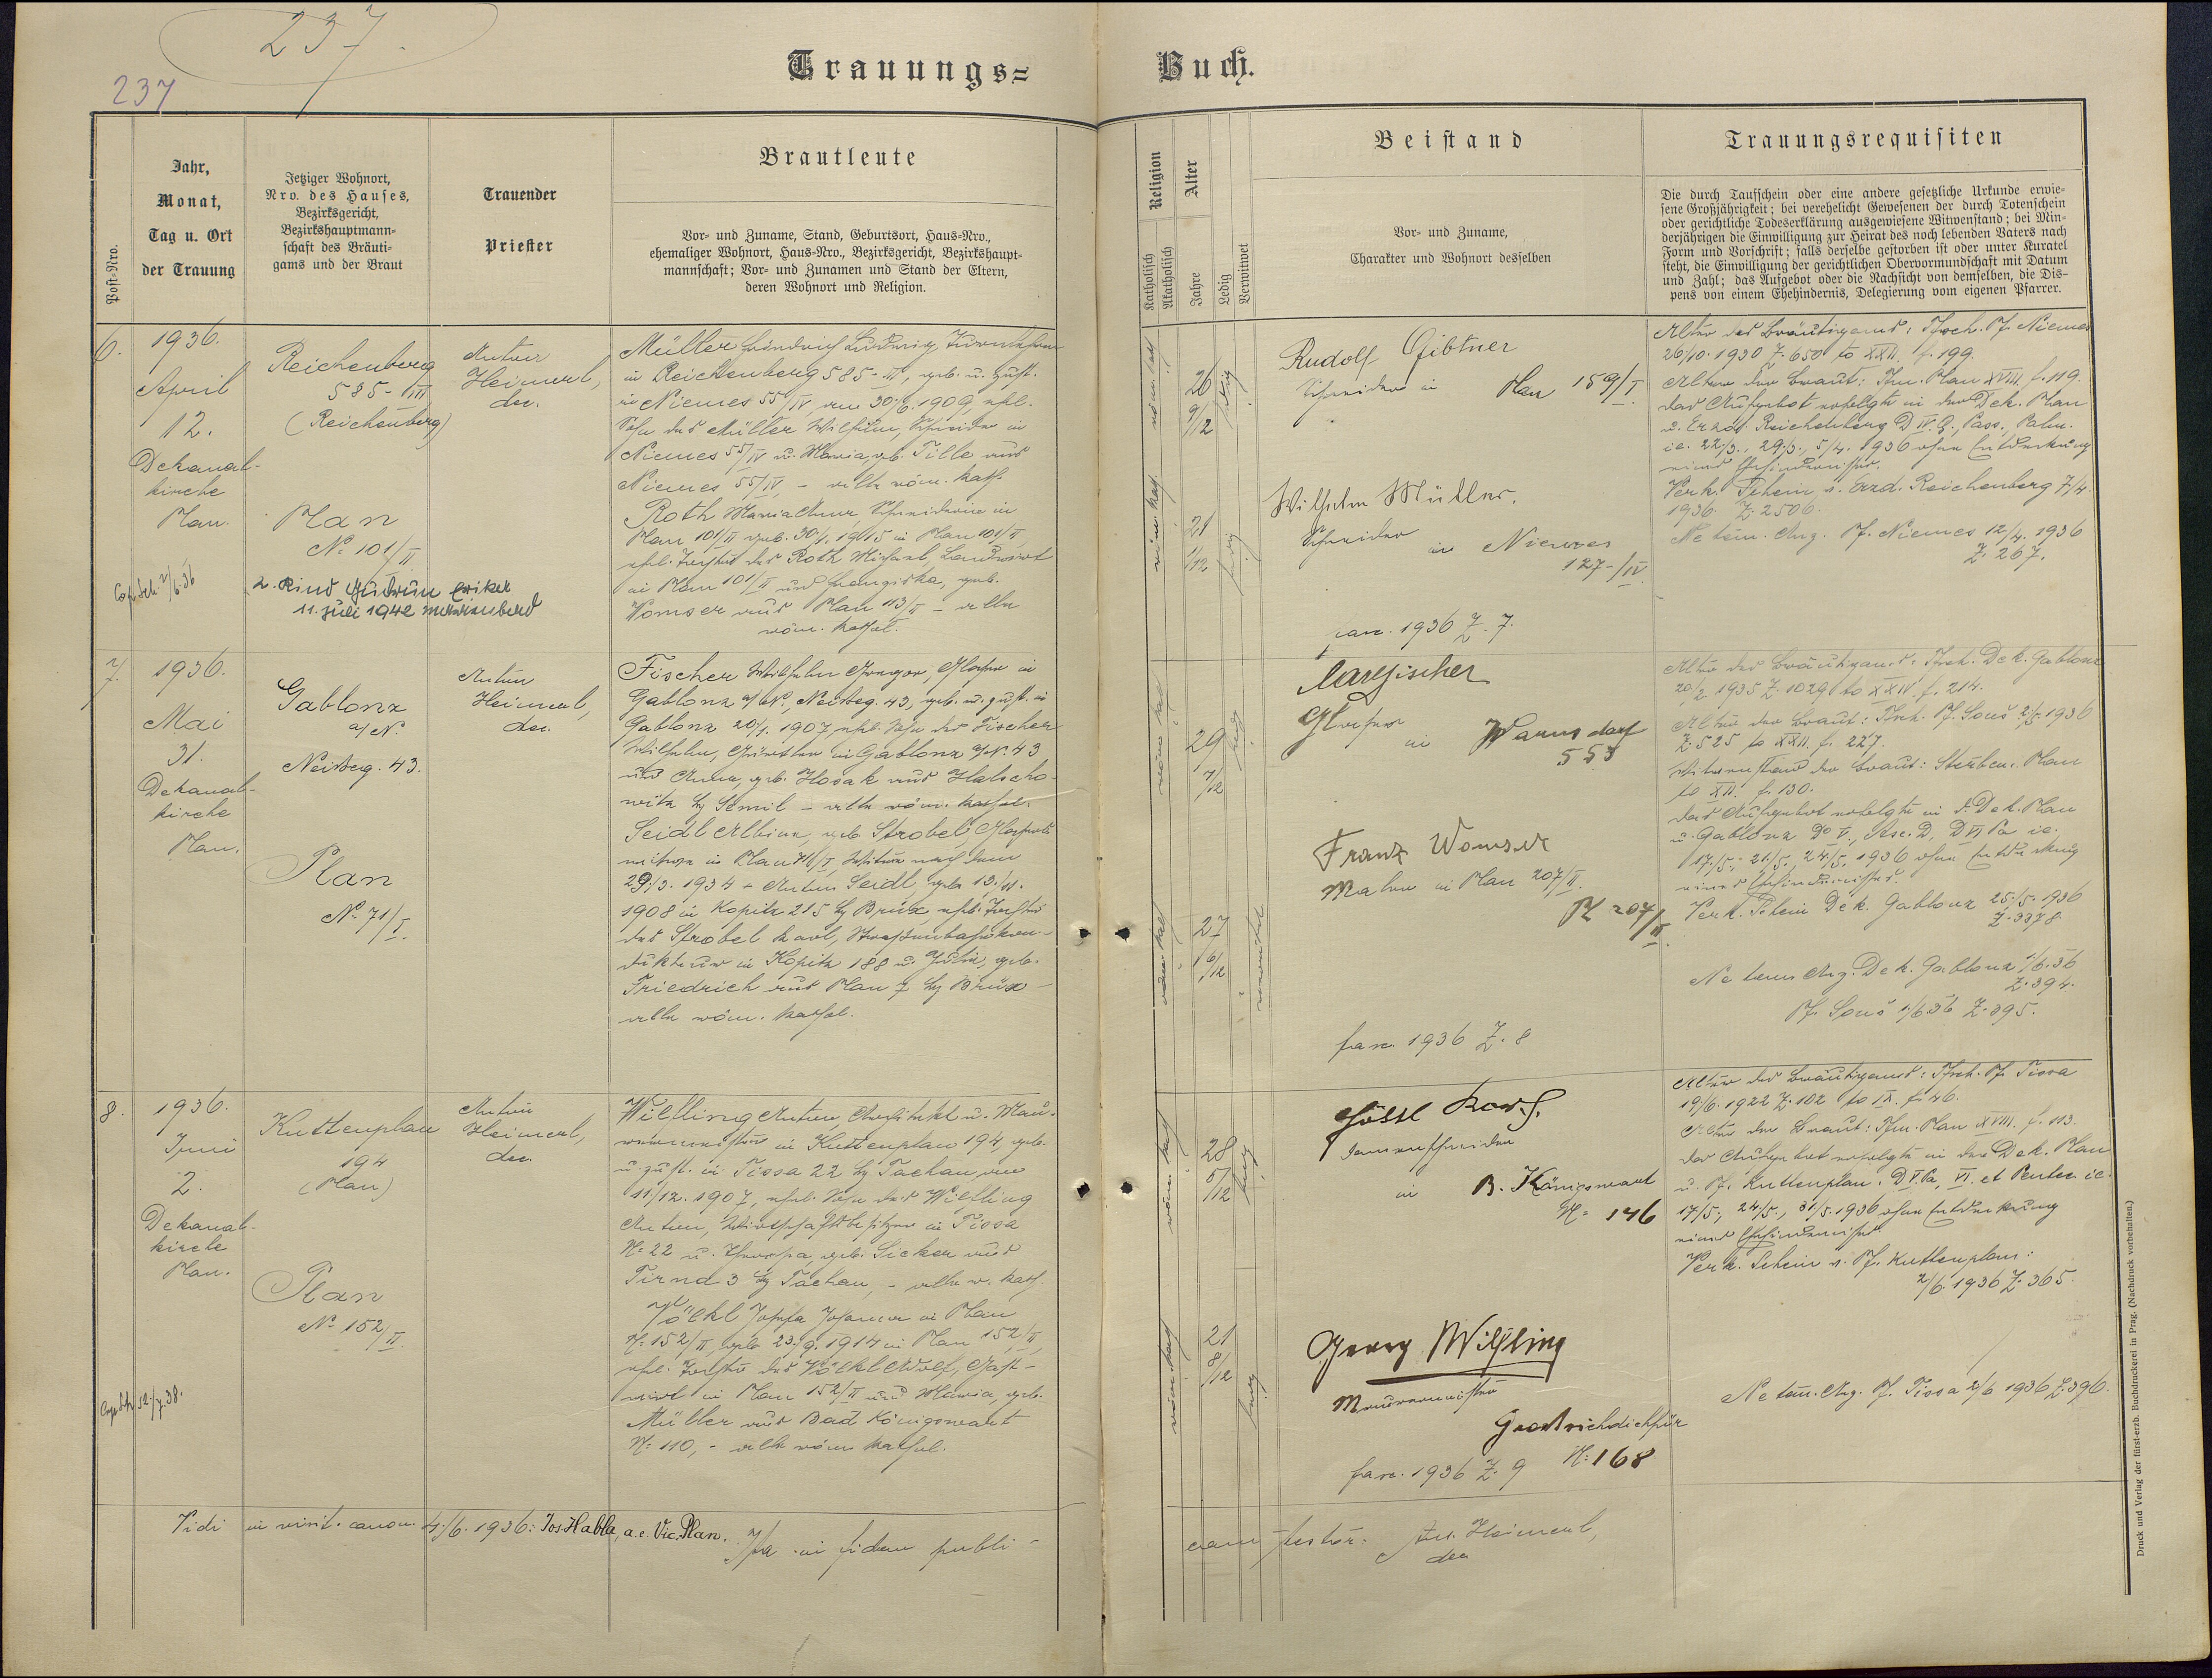 237.
237
Trauungs=
Buch.
Post-Nro.
Jahr,
Monat,
Tag u. Ort
der Trauung
Jetziger Wohnort,
Nro. des Hauses,
Bezirksgericht,
Bezirkshauptmann-
schaft des Bräuti-
gams und der Braut
Trauender
Priester
Brautleute
Vor- und Zuname, Stand, Geburtsort, Haus-Nro.,
ehemaliger Wohnort, Haus-Nro., Bezirksgericht, Bezirkshaupt-
mannschaft; Vor- und Zunamen und Stand der Eltern,
deren Wohnort und Religion.
Religion
Katholisch
Akatholisch
Alter
Jahre
Ledig
Verwitwet
Beistand
Vor- und Zuname,
Charakter und Wohnort desselben
Trauungsrequisiten
Die durch Taufschein oder eine andere gesetzliche Urkunde erwie-
sene Großjährigkeit; bei verehelicht Gewesenen der durch Totenschein
oder gerichtliche Todeserklärung ausgewiesene Witwenstand; bei Min-
derjährigen die Einwilligung zur Heirat des noch lebenden Vaters nach
Form und Vorschrift; falls derselbe gestorben ist oder unter Kuratel
steht, die Einwilligung der gerichtlichen Obervormundschaft mit Datum
und Zahl; das Aufgebot oder die Nachsicht von demselben, die Dis-
pens von einem Ehehindernis, Delegierung vom eigenen Pfarrer.
6.
1936.
April
12.
Dekanal-
kirche
Plan.
Reichenberg
585-III
(Reichenberg)
Plan
No 101/II
2. Kind Gudrun Erika
11. Juli 1942 Marienbad
Anton
Heimerl,
dec.
Müller Friedrich Ludwig, Turnlehrer
in Reichenberg 585-III, geb. u. zust.
in Niemes 55/IV, am 30/6. 1909, ehl.
Sohn des Müller Wilhelm, Schneider in
Niemes 55/IV u. Maria, geb. Tille aus
Niemes 55/IV, - alle röm. kath.
Roth Maria Anna, Schneiderin in
Plan 101/II geb. 30/1. 1915 in Plan 101/II,
ehl. Tochter des Roth Michael, Landwirt
in Plan 101/II und Franziska, geb.
Womser aus Plan 113/II - alle
röm. kathol.
röm. kat
26
9/12
ledig
röm. kat
21
2/12
ledig
Rudolf Gibtner
Schneider in Plan 159/I
Wilhelm Müller,
Schneider
in Niemes
127-/IV.
fasc. 1936 Z. 7.
Alter des Bräutigams: Tfsch. Pf. Niemes
26/10. 1930 Z. 650 to XXII. f. 199.
Alter der Braut: Tfm. Plan XVIII f. 119.
Das Aufgebot erfolgte in der Dek. Plan
u. Erzd. Reichenberg D IV. Q., Pass., Palm.
ie. 22/3., 29/3., 5/4. 1936 ohne Entdeckung
eines Ehehindernisses.
Verk. Schein v. Erzd. Reichenberg 7/4.
1936. Z. 2506.
Ne tem. Anz. Pf. Niemes 12/4. 1936
Z. 267.
7.
1936.
Mai
31.
Dekanal-
kirche
Plan.
Gablonz
a/N.
Neisseg. 43.
Plan
No 71/I.
Anton
Heimerl,
dec.
Fischer Wilhelm Gregor, Glaser in
Gablonz a/N., Neisseg. 43, geb. u. zust. in
Gablonz 20/1. 1907, ehl. Sohn des Fischer
Wilhelm, Gürtler in Gablonz a/N. 43
und Anna, geb. Hosak aus Halscho-
witz bz Semil - alle röm. kathol.
Seidl Albina, geb. Strobel,
in Plan 71/I, Witwe nach dem
29/3. 1934 + Anton Seidl, geb. 13/11.
1908 in Kopitz 215 bz Brüx, ehl. Tochter
des Strobel Karl, Strassenbahnkon-
dukteur in Kopitz 188 u. Julia, geb.
Friedrich aus Plan 7 bz Brüx -
alle röm. kathol.
röm. kat
29
4/12
ledig
röm. kat
27
6/12
verwitwet
Carl Fischer
Glaser
in Warnsdorf
553
Franz Womser
Maler in Plan 207/II.
Pl 207/II.
fasc. 1936 Z. 8
Alter des Bräutigams: Tfsch. Dek. Gablonz
20/2. 1935 Z. 1029 to XXIV f. 214.
Alter der Braut: Tfsch. Pf. Souš 2/5. 1936
Z. 525 to XXII. f. 227.
Witwenstand der Braut: Sterbem. Plan
to XII. f. 130.
Das Aufgebot erfolgte in d. Dek. Plan
u. Gablonz Do V., Asc. D., D VI Pa ie.
17/5., 21/5., 24/5. 1936 ohne Entdeckung
eines Ehehindernisses.
Verk. Schein Dek. Gablonz 25/5. 1936
Z. 3378
Ne tem. Anz. Dek. Gablonz 1/6.36
Z. 394.
Pf. Souš 1/6.36 Z. 395.
8.
1936.
Juni
2.
Dekanal-
kirche
Plan.
Kuttenplan
194
(Plan)
Plan
No 152/II.
Anton
Heimerl,
dec.
Wilfling Anton, Architekt u. Mau-
rermeister in Kuttenplan 194, geb.
u. zust. in Tissa 22 bz Tachau, am
11/12. 1907, ehel. Sohn des Wilfling
Anton, Wirtschaftsbesitzer in Tissa
No 22 u. Theresia, geb. Sicker aus
Tirna 3 bz Tachau, - alle r. kath.
Völkl Josefa Johanna in Plan
No 152/II, geb. 23/9. 1914 in Plan 152/II,
ehl. Tochter des Völkl Adolf, Gast-
wirt in Plan 152/II und Maria, geb.
Müller aus Bad Königswart
No 110, - alle röm. kathol.
röm. kat
28
5/12
ledig
röm. kat
21
8/12
ledig
Gössl Karl.
Damenschneider
in B. Königswart
No 146
Georg Wilfling
Maurermeister
No: 168
fasc. 1936 Z. 9
Alter des Bräutigams: Tfsch. Pf. Tissa
19/6. 1922 Z. 102 to IX. f. 46.
Alter der Braut: Tfm. Plan XVIII. f. 113.
Das Aufgebot erfolgte in der Dek. Plan
u. Pf. Kuttenplan: D V. Pa, VI. et Pentec ie.
17/5., 24/5., 31/5. 1936 ohne Entdeckung
eines Ehehindernisses
Verk. Schein v. Pf. Kuttenplan:
2/6. 1936 Z. 365.
Ne tem. Anz. Pf. Tissa 2/6 1936 Z. 396.
Vidi in visit. canon. 4./6. 1936: Jos. Habla, a. e. Vic. Plan.
Ita in fidem publi-
cam testor. Ant. Heimerl,
dec
Druck und Verlag der fürst-erzb. Buchdruckerei in Prag. (Nachdruck vorbehalten.)